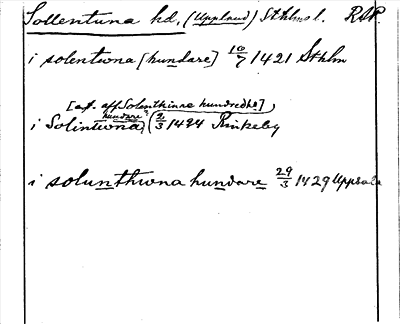 Sollentuna hd. (Uppland) Sthlms l. RAP.
i solentwna [hundare] 10/7 1421 Sthlm
[ast. aff Solenthinne hundredhe]
hundare
i Solintwna, (2/3 1424 Rinkeby
i solunthwna hundare 29/3 1429 Uppsala